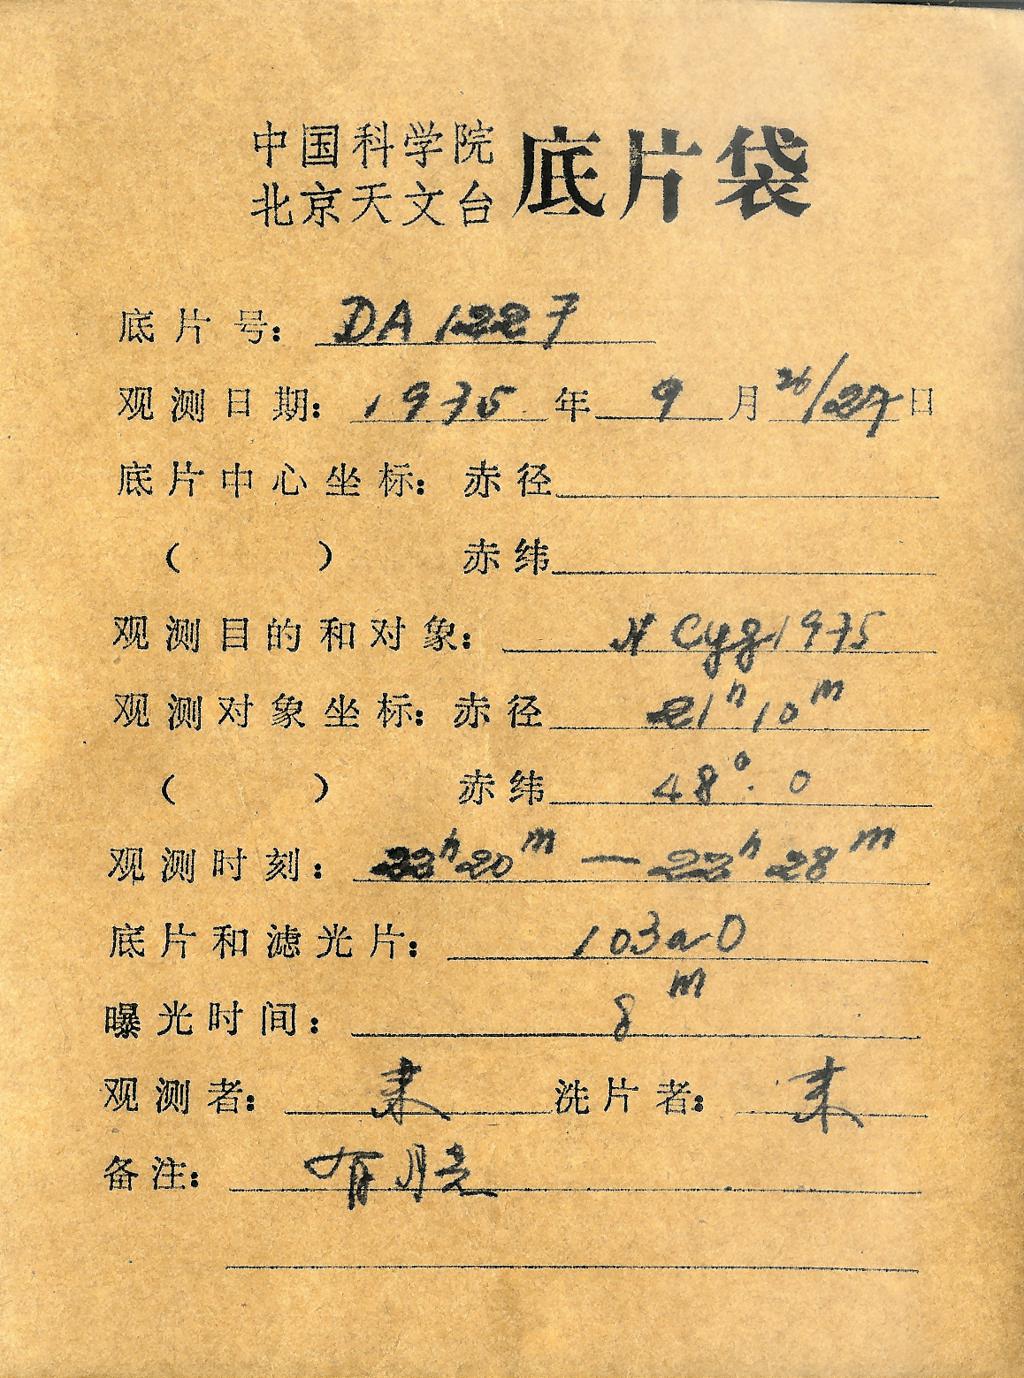 中国科学院
北京天文台 底片袋
底片号: DA 1227
观测日期: 1975 年 9 月 26/27 日
底片中心坐标: 赤径
( ) 赤纬
观测目的和对象: N Cyg 1975
观测对象坐标: 赤径 21ʰ10ᵐ
( ) 赤纬 48°.0
观测时刻: 20ᵐ — 28ᵐ
底片和滤光片: 103a-O
曝光时间: 8ᵐ
观测者: 洗片者:
备注: 有月光